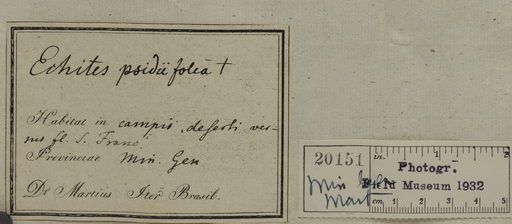 Echites psidiifolia †
Habitat in campis deserti ver-
sus fl. S. Franc.
Provinciae Min. Gen
Dr Martius Iter Brasil.
20151
in. 1 2
Photogr.
Field Museum 1932
Min
Mart
cm. 1 2 3 4 5